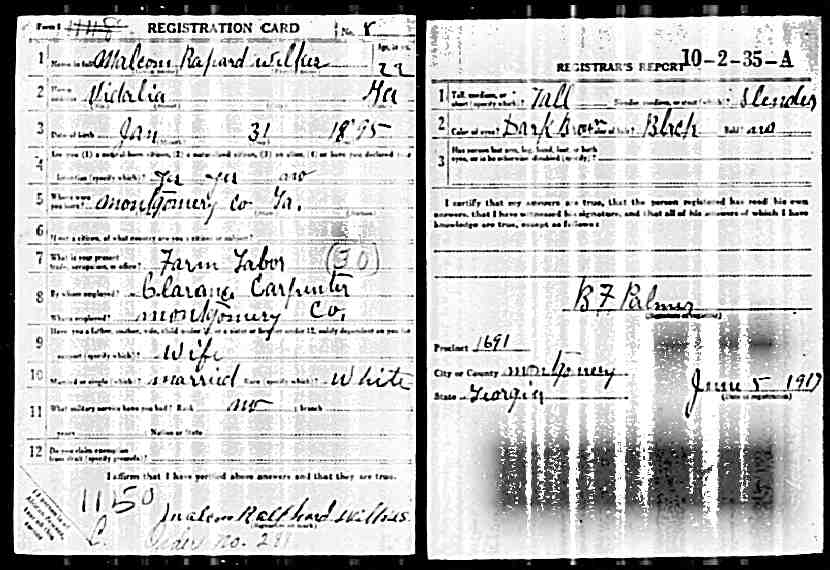 Form 1 REGISTRATION CARD No. 8
1 Name in full Malcom Rapard Wilkes Age, in yrs. 22
2 Home address Vidalia Ga
3 Date of birth Jan 31 1895
4 Are you (1) a natural-born citizen, (2) a naturalized citizen, (3) an alien, (4) or have you declared your
intention (specify which)? yes yes no
5 Where were you born? Montgomery Co Ga.
6 If not a citizen, of what country are you a citizen or subject?
7 What is your present trade, occupation, or office? Farm Labor (30)
8 By whom employed? Clarance Carpenter
Where employed? Montgomery Co,
9 Have you a father, mother, wife, child under 12, or a sister or brother under 12, solely dependent on you for
support (specify which)? Wife
10 Married or single (which)? married Race (specify which)? White
11 What military service have you had? Rank no ; branch
years ; Nation or State
12 Do you claim exemption from draft (specify grounds)?
I affirm that I have verified above answers and that they are true.
1150
Malcom Ralphard Wilkes
(Signature or mark)
Order no.
10-2-35-A
REGISTRAR'S REPORT
1 Tall, medium, or short (specify which)? Tall Slender, medium, or stout (which)? Slender
2 Color of eyes? Dark Brown Color of hair? Black Bald? no
3 Has person lost arm, leg, hand, foot, or both eyes, or is he otherwise disabled (specify)?
I certify that my answers are true, that the person registered has read his own
answers, that I have witnessed his signature, and that all of his answers of which I have
knowledge are true, except as follows:
B F Palmer
(Signature of registrar)
Precinct 1691
City or County Montgomery
State Georgia June 5 1917
(Date of registration)